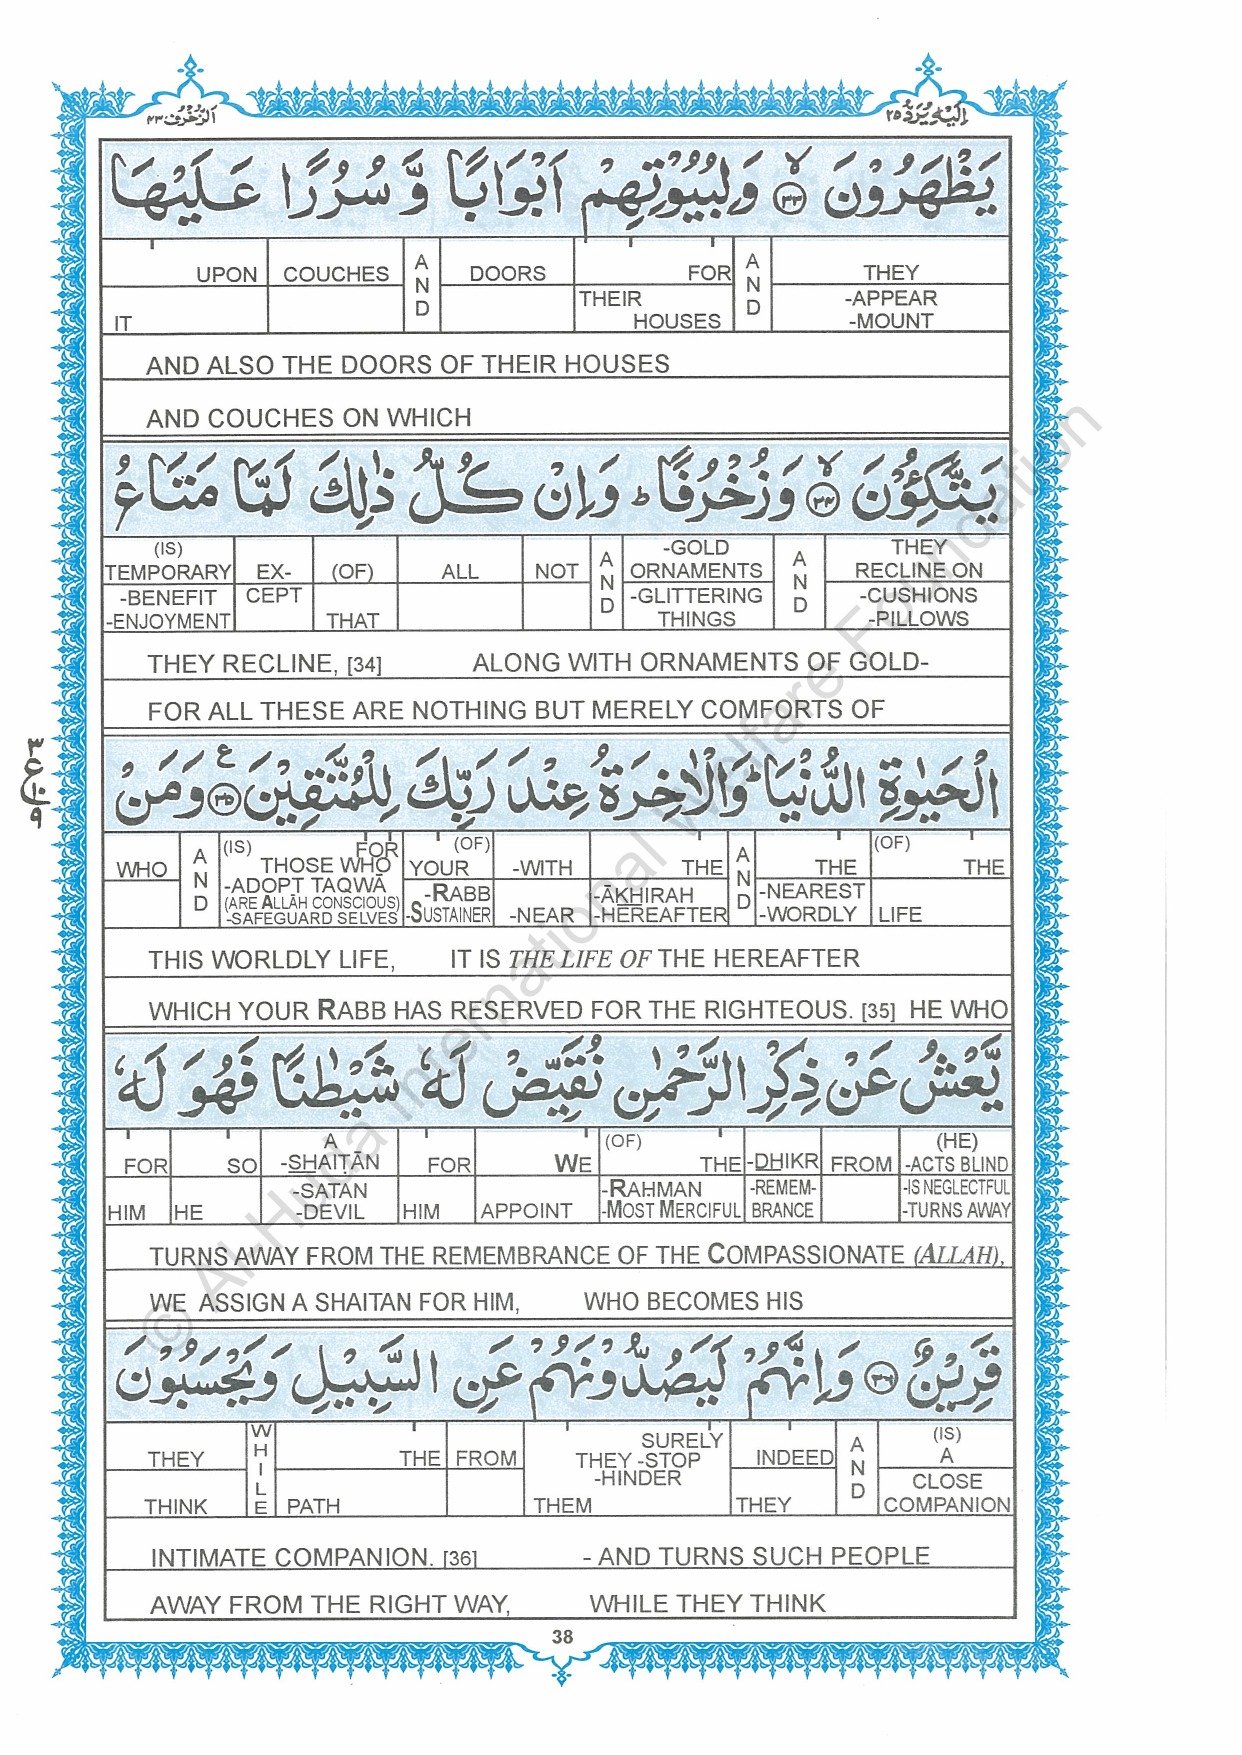 الزخرف ٤٣
اليه يرد ٢٥
يَظْهَرُوْنَ ۙ﴿٣٣﴾ وَلِبُيُوْتِهِمْ اَبْوَابًا وَّ سُرُرًا عَلَيْهَا
THEY -APPEAR -MOUNT
AND
FOR THEIR HOUSES
DOORS
AND
COUCHES
UPON IT
AND ALSO THE DOORS OF THEIR HOUSES
AND COUCHES ON WHICH
يَتَّكِـُٔوْنَ ۙ﴿٣٤﴾ وَزُخْرُفًا ؕ وَاِنْ كُلُّ ذٰلِكَ لَمَّا مَتَاعُ
THEY RECLINE ON -CUSHIONS -PILLOWS
AND
-GOLD ORNAMENTS -GLITTERING THINGS
AND
NOT
ALL
(OF) THAT
EX- CEPT
(IS) TEMPORARY -BENEFIT -ENJOYMENT
THEY RECLINE, [34] ALONG WITH ORNAMENTS OF GOLD-
FOR ALL THESE ARE NOTHING BUT MERELY COMFORTS OF
الْحَيٰوةِ الدُّنْيَا ؕ وَالْاٰخِرَةُ عِنْدَ رَبِّكَ لِلْمُتَّقِيْنَ ﴿٣٥﴾ ع وَمَنْ
٣
ع
١٠
٩
(OF) THE LIFE
THE -NEAREST -WORDLY
AND
THE -ĀKHIRAH -HEREAFTER
-WITH -NEAR
(OF) YOUR -RABB -SUSTAINER
(IS) FOR THOSE WHO -ADOPT TAQWĀ (ARE ALLĀH CONSCIOUS) -SAFEGUARD SELVES
AND
WHO
THIS WORLDLY LIFE, IT IS THE LIFE OF THE HEREAFTER
WHICH YOUR RABB HAS RESERVED FOR THE RIGHTEOUS. [35] HE WHO
يَّعْشُ عَنْ ذِكْرِ الرَّحْمٰنِ نُقَيِّضْ لَهٗ شَيْطٰنًا فَهُوَ لَهٗ
(HE) -ACTS BLIND -IS NEGLECTFUL -TURNS AWAY
FROM
-DHIKR -REMEM- BRANCE
(OF) THE -RAHMAN -MOST MERCIFUL
WE APPOINT
FOR HIM
A -SHAITĀN -SATAN -DEVIL
SO HE
FOR HIM
TURNS AWAY FROM THE REMEMBRANCE OF THE COMPASSIONATE (ALLAH),
WE ASSIGN A SHAITAN FOR HIM, WHO BECOMES HIS
قَرِيْنٌ ﴿٣٦﴾ وَاِنَّهُمْ لَيَصُدُّوْنَهُمْ عَنِ السَّبِيْلِ وَيَحْسَبُوْنَ
(IS) A CLOSE COMPANION
AND
INDEED THEY
SURELY THEY -STOP -HINDER THEM
FROM
THE PATH
WHILE
THEY THINK
INTIMATE COMPANION. [36] - AND TURNS SUCH PEOPLE
AWAY FROM THE RIGHT WAY, WHILE THEY THINK
38
© Al-Huda International Welfare Foundation